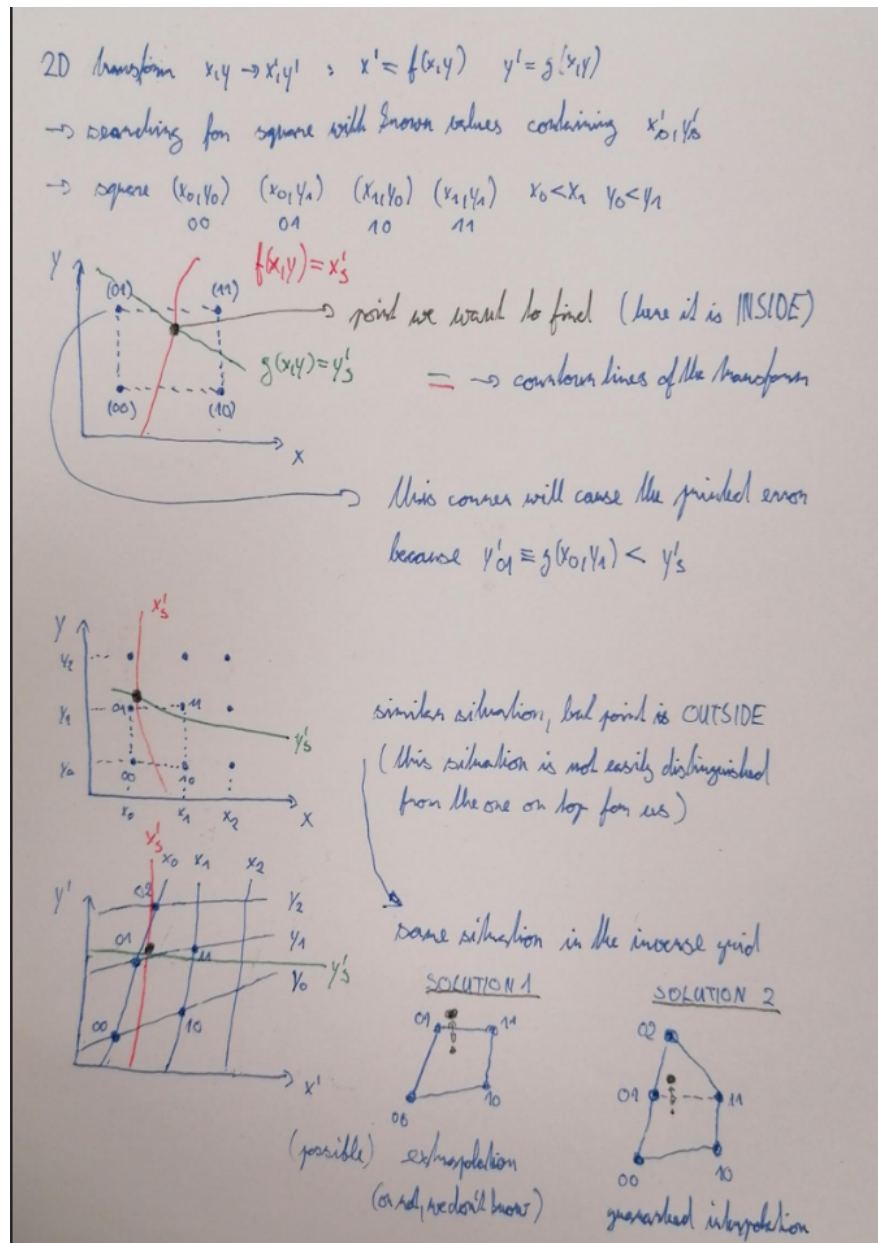 2D transform x,y → x',y' : x' = f(x,y) y' = g(x,y)
→ searching for square with known values containing x's, y's
→ square (x0,y0) (x0,y1) (x1,y0) (x1,y1) x0<x1 y0<y1
00 01 10 11
f(x,y) = x's
y
(01) (11)
→ point we want to find (here it is INSIDE)
g(x,y) = y's
= → countour lines of the transform
(00) (10)
x
this corner will cause the printed error
because y'01 ≡ g(x0,y1) < y's
x's
y
y2
y1 01 11
y's
y0 00 10
x0 x1 x2 x
similar situation, but point is OUTSIDE
(this situation is not easily distinguished
from the one on top for us)
x's x0 x1 x2
y' 02 y2
01 11 y1
y's
00 10 y0
x'
same situation in the inverse grid
SOLUTION 1 SOLUTION 2
01 11
00 10
02
01 11
00 10
(possible) extrapolation
(or not, we don't know)
guaranteed interpolation